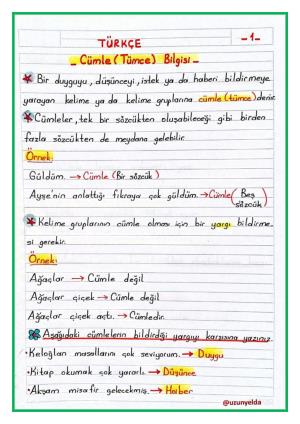 TÜRKÇE
-1-
- Cümle (Tümce) Bilgisi -
* Bir duyguyu, düşünceyi, istek ya da haberi bildirmeye
yarayan kelime ya da kelime gruplarına cümle (tümce) denir.
* Cümleler, tek bir sözcükten oluşabileceği gibi birden
fazla sözcükten de meydana gelebilir.
Örnek:
Güldüm. → Cümle (Bir sözcük)
Ayşe'nin anlattığı fıkraya çok güldüm. → Cümle (Beş sözcük)
* Kelime gruplarının cümle olması için bir yargı bildirme-
si gerekir.
Örneği:
Ağaçlar → Cümle değil
Ağaçlar çiçek → Cümle değil
Ağaçlar çiçek açtı. → Cümledir.
Aşağıdaki cümlelerin bildirdiği yargıyı karşısına yazınız.
• Keloğlan masallarını çok seviyorum. → Duygu
• Kitap okumak çok yararlı. → Düşünce
• Akşam misafir gelecekmiş. → Haber
@uzunyelda